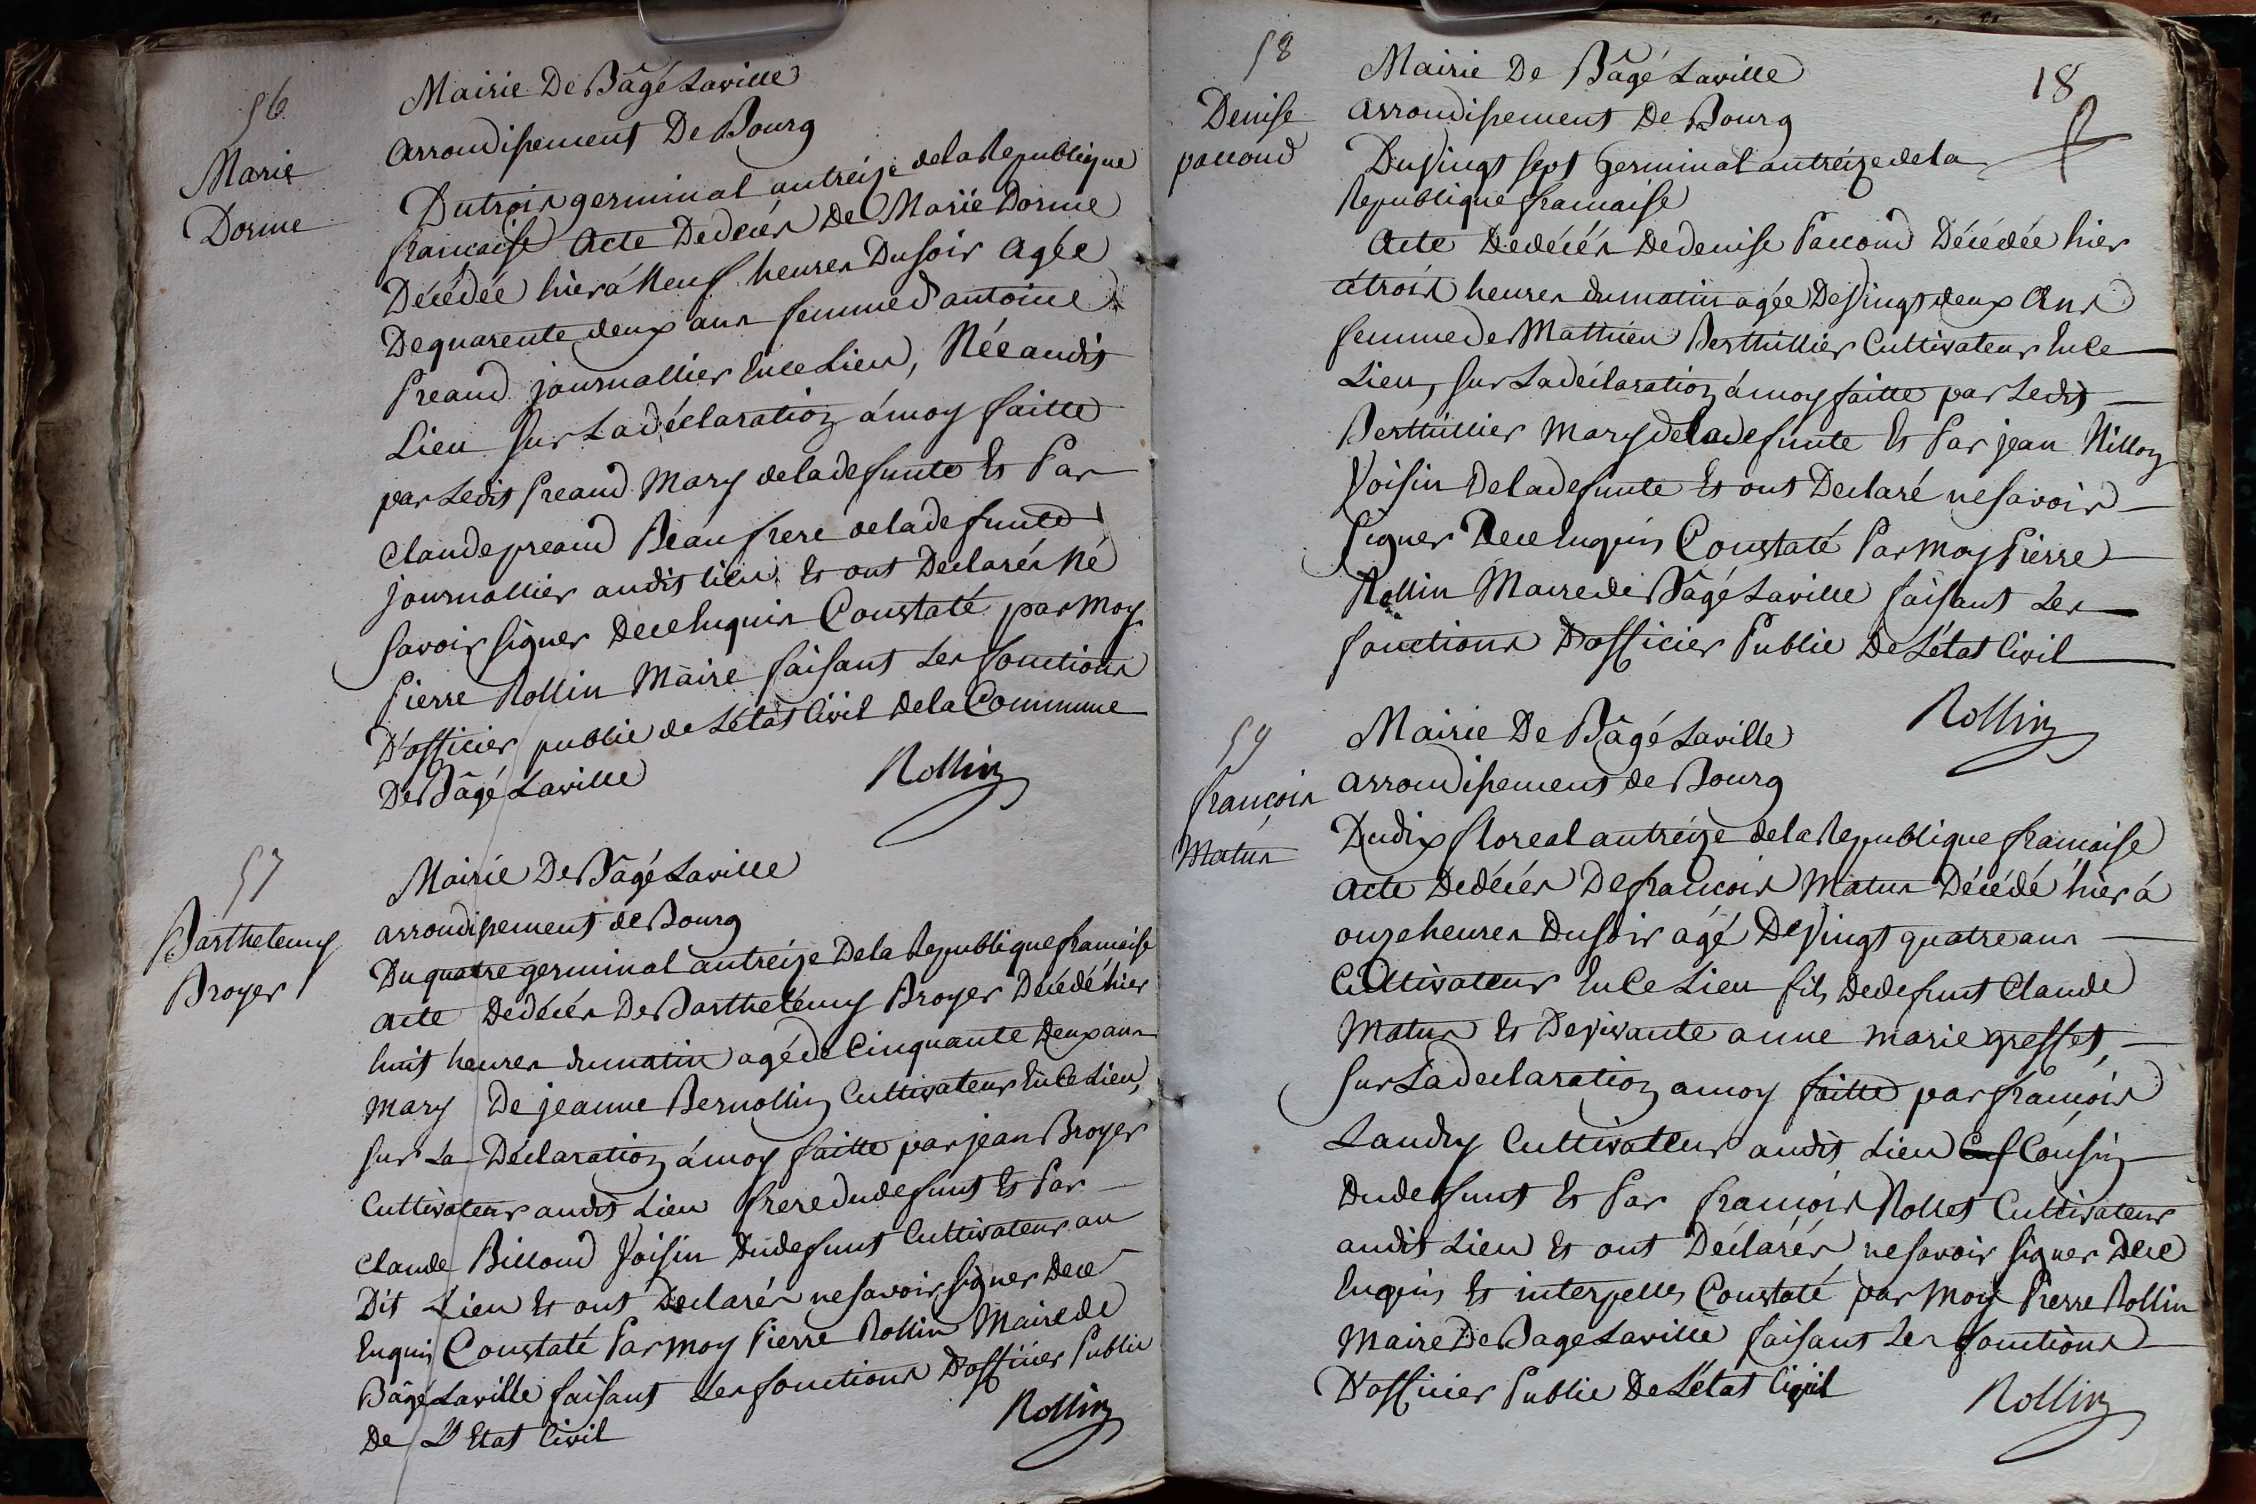 56
Marie
Dorme
Mairie De Bâgé Laville
arrondissement De Bourg
Du trois germinal an treize de la Republique
francaise Acte De decés De Marie Dorme
Décédée hier á Neuf heures Du soir Agée
De quarente deux ans femme d'antoine
Preaud journallier En ce Lieu, Née audit
Lieu sur La déclaration á moy faitte
par Ledit Preaud Mary de la defunte Et Par
Claude preaud Beau frere de la defunte
journallier audit lieu Et ont Declarés Ne
savoir signer De ce Enquis Constaté par moy
Pierre Rollin Maire faisant Les fonctions
D'officier public de L'état Civil De la Commune
De Bâgé Laville
Rollin
57
Barthelemy
Broyer
Mairie De Bâgé Laville
arrondissement de Bourg
Du quatre germinal an treize De la Republique francaise
acte De décés De Barthelémy Broyer Décédé hier
huit heures du matin agé de Cinquante Deux ans
Mary De jeanne Bernollin Cultivateur En Ce Lieu,
sur La Déclaration á moy faitte par jean Broyer
Cultivateur audit Lieu frere du defunt Et Par
Claude Billoud Voisin Du defunt Cultivateur au
Dit Lieu Et ont Declarés ne savoir signer De ce
Enquis Constaté Par moy Pierre Rollin Maire de
Bâgé Laville faisant Les fonctions D'officier Public
De L'Etat Civil
Rollin
18
58
Denise
paccoud
Mairie De Bâgé Laville
arrondissement De Bourg
Du Vingt sept Germinal an treize de la
Republique francaise
Acte De décés De denise Paccoud Décédée hier
á trois heures du matin agée De Vingt deux Ans
femme de Mathieu Berthillier Cultivateur En ce
Lieu, sur La déclaration á moy faitte par Ledit
Berthillier Mary de la defunte Et Par jean Nillon
Voisin De la defunte Et ont Declaré ne savoir
signer De ce Enquis Constaté Par moy Pierre
Rollin Maire de Bâgé Laville faisant Les
fonctions D'officier Public De L'état Civil
Rollin
59
françois
Matus
Mairie De Bâgé Laville
arrondissement de Bourg
Du dix floreal an treize de la Republique francaise
acte De décés De francois Matus Décédé hier á
onze heures Du soir agé De Vingt quatre ans
Cultivateur En Ce Lieu fils De defunt Claude
Matus Et De vivante anne marie gresset,
sur La declaration a moy faitte par francois
Landry Cultivateur audit Lieu Cousin
Du defunt Et Par francois Rollet Cultivateur
audit Lieu Et ont Déclarés ne savoir signer De ce
Enquis Et interpelles Constaté par moy Pierre Rollin
Maire De Bage Laville faisant Les fonctions
D'officier Public De L'état Civil
Rollin